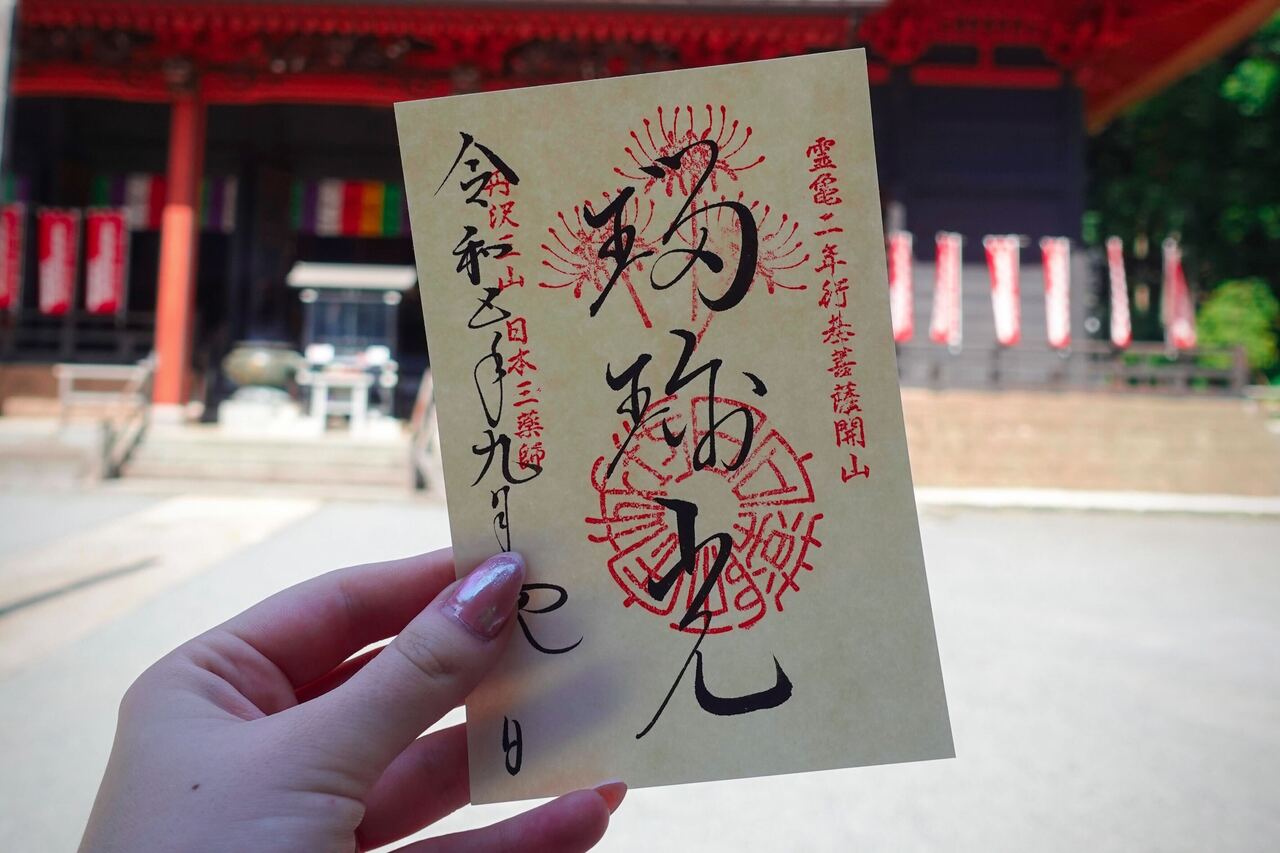 霊亀二年行基菩薩開山
瑠璃光
丹沢山 日本三薬師
令和五年九月
日